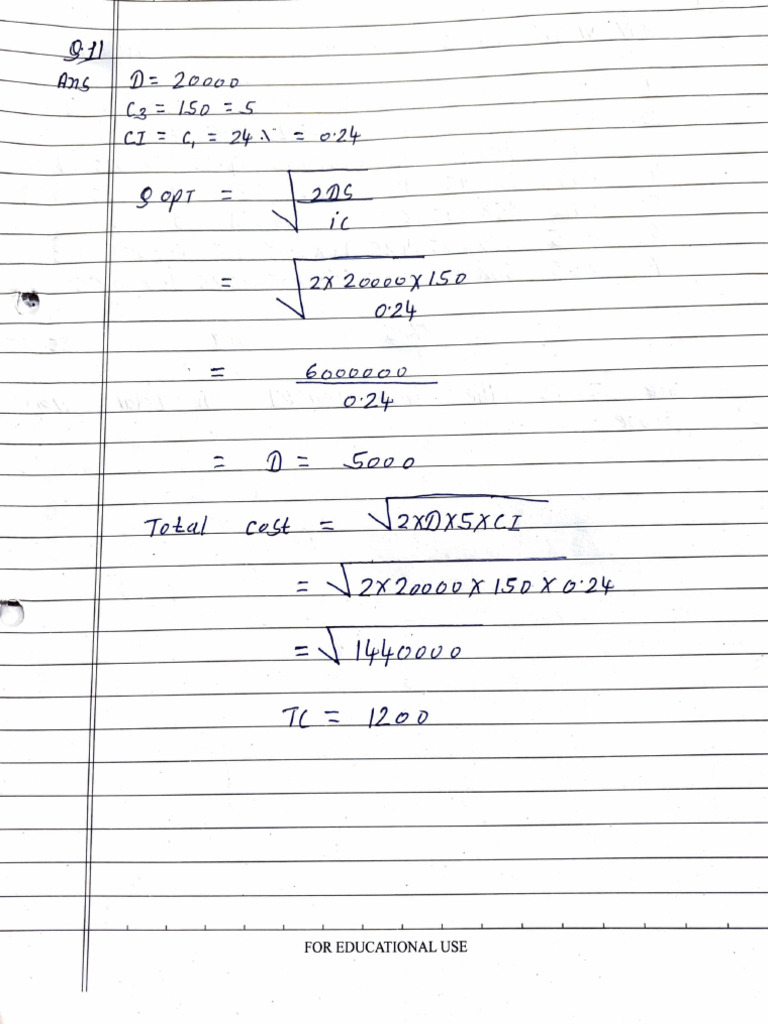 Q.11
Ans D = 20000
C₃ = 150 = S
CI = C₁ = 24% = 0.24
Q OPT = √2DS
iC
= √2 × 20000 × 150
0.24
= 6000000
0.24
= D = 5000
Total cost = √2×D×S×CI
= √2×20000×150×0.24
= √1440000
TC = 1200
FOR EDUCATIONAL USE